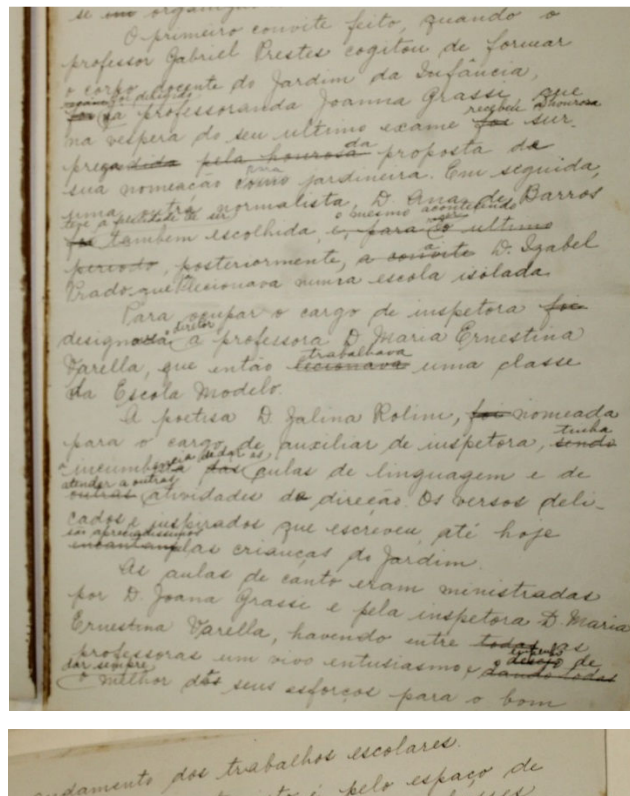 se em organiza
O primeiro convite feito, quando o
professor Gabriel Prestes cogitou de formar
o corpo docente do Jardim da Infância,
foi dirigido
a professoranda Joanna Grassi, que
recebeu a honrosa
na vespera do seu ultimo exame foi sur-
da
pregadida pela honrosa proposta de
sua nomeação como jardineira. Em seguida,
uma normalista, D. Ana de Barros
teve a felicidade de ser o mesmo acontecendo
foi tambem escolhida, e, para o ultimo
periodo, posteriormente, a convite D. Izabel
Prado que lecionava numa escola isolada
Para ocupar o cargo de inspetora foi
diretor
designada a professora D. Maria Ernestina
Varella, que então
trabalhava
lecionava uma classe
da Escola Modelo.
A poetisa D. Zalina Rolim, foi nomeada
tinha
para o cargo de auxiliar de inspetora, sendo
a incumbencia de dar as
das aulas de linguagem e de
atender a outras
outras atividades de direção. Os versos deli-
cados e inspirados que escreveu, até hoje
são apreciadissimos
encantam as crianças do Jardim.
As aulas de canto eram ministradas
por D. Joana Grassi e pela inspetora D. Maria
Ernestina Varella, havendo entre todas as
professoras um vivo entusiasmo e o desejo de
dar sempre dando todas
o melhor dos seus esforços para o bom
andamento dos trabalhos escolares.
é pelo espaço de